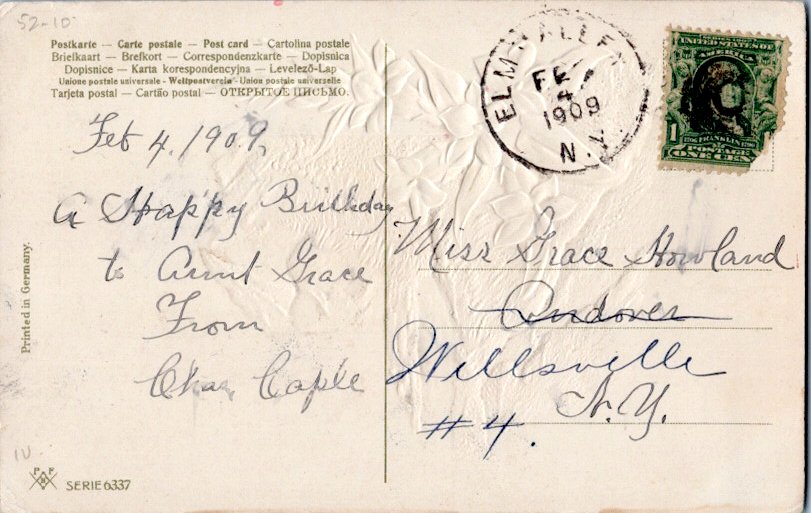 52-10
Postkarte — Carte postale — Post card — Cartolina postale
Brieikaart — Brefkort — Correspondenzkarte — Dopisnica
Dopisnice — Karta korespondencyjna — Levelező-Lap
Unione postale universale - Weltpostverein - Union postale universelle
Tarjeta postal — Cartão postal — ОТКРЫТОЕ ПИСЬМО.
Feb 4, 1909,
A Happy Birthday
to Aunt Grace
From
Chas, Caple
Printed in Germany.
PFB
SERIE 6337
ELM VALLEY
FEB
4
1909
N.Y.
UNITED STATES OF
AMERICA
1 FRANKLIN
POSTAGE
ONE CEN
Miss Grace Howland
Andover
Wellsville
N.Y.
#4.